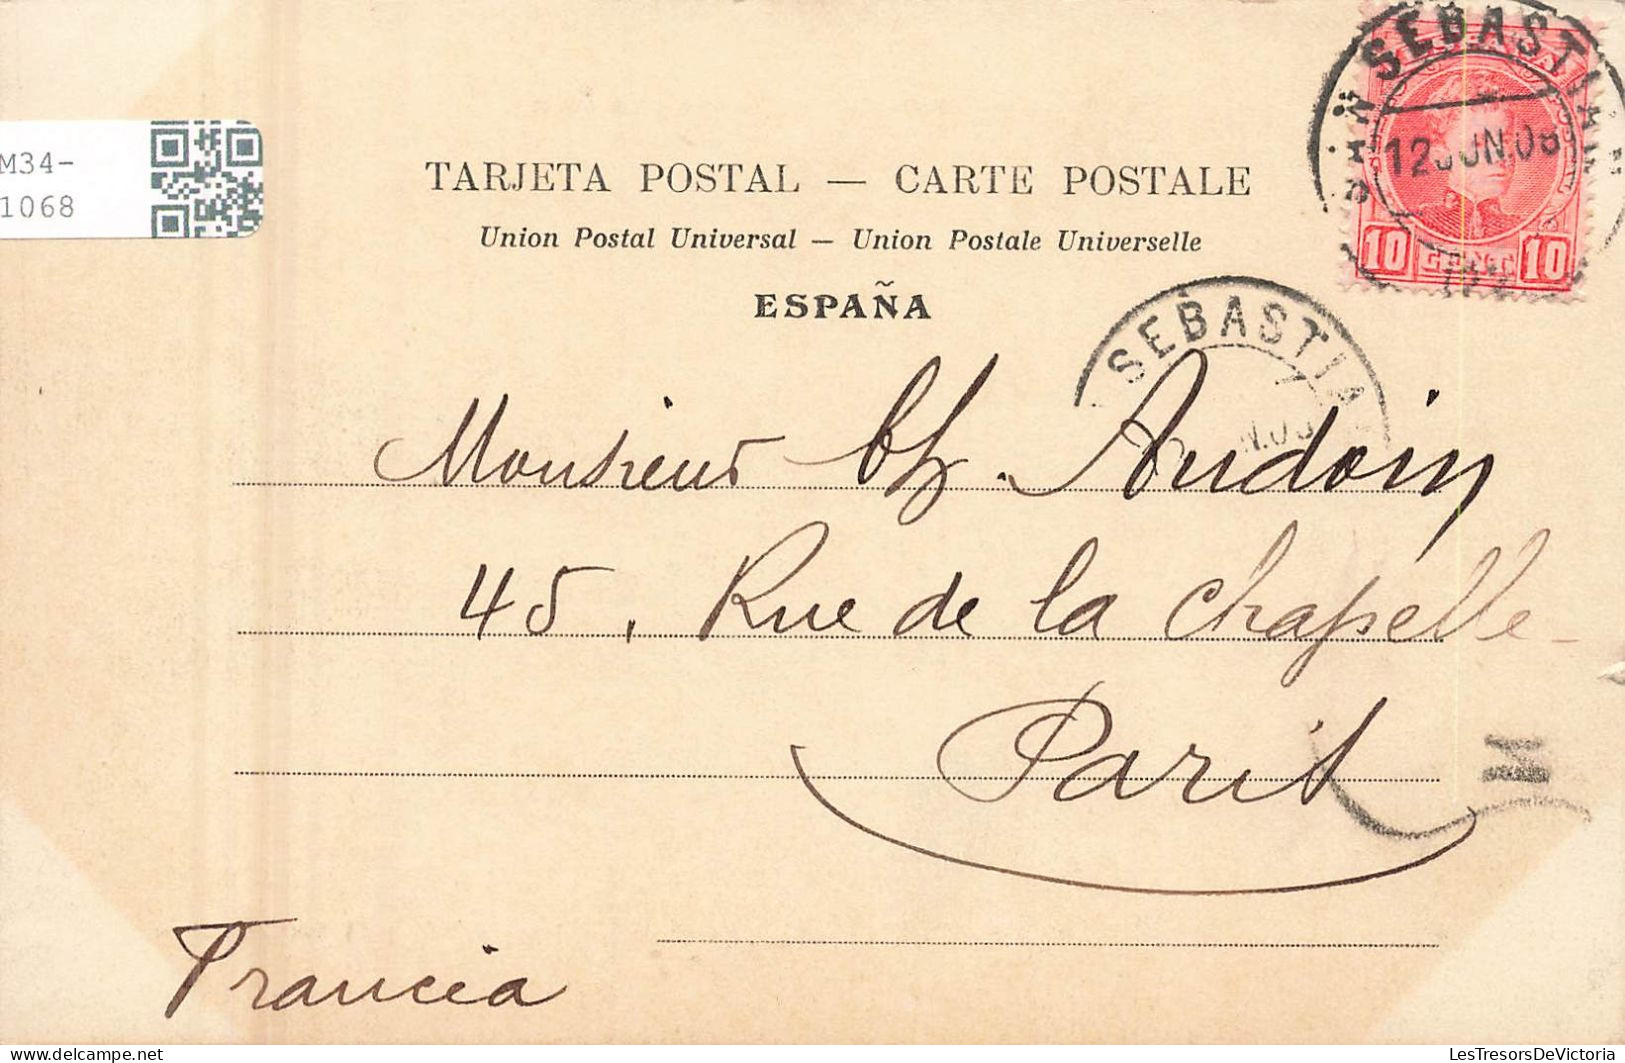 M34-
1068
TARJETA POSTAL — CARTE POSTALE
Union Postal Universal — Union Postale Universelle
ESPAÑA
SAN SEBASTIAN
12 JUN.08
10 CENT 10
SEBASTIA
Monsieur Ch. Audoin
45, Rue de la Chapelle
Paris
Francia
delcampe.net
LesTresorsDeVictoria